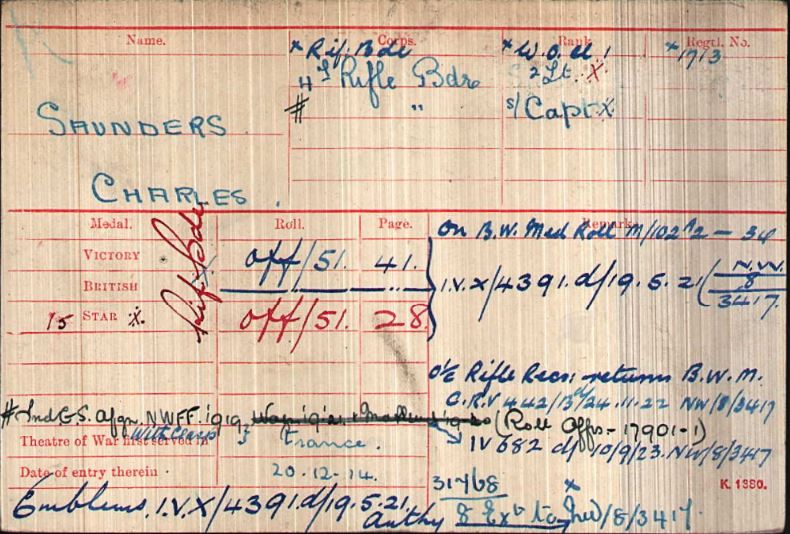 Name. Corps. Rank. Regtl. No.
× Rif. Bde × W.O. Cl. 1 × 1713
Rifle Bde 2/Lt. X
# " s/ Capt X
SAUNDERS
CHARLES.
Medal. Roll. Page. Remarks.
Rif. Bde
On B.W. Med Roll M/102 — 34
VICTORY off/51. 41.
BRITISH ,, ..
I.V.X/4391.d/19.5.21 (N.W. 8 3417.
15 STAR X. off/51. 28.
O/c Rifle Recs: returns B.W.M.
C.R.V 442/13 d/24.11.22 NW/8/3417
# Ind G.S. Afgn. NWFF. 1919, (Roll Offs- 17901-1)
Theatre of War first served in France.
IV 682 d/ 10/9/23. NW/8/3417
Date of entry therein 20.12.14.
31768 ×
K. 1380.
Emblems. I.V.X/4391.d/19.5.21.
Authy 8 /8/3417.